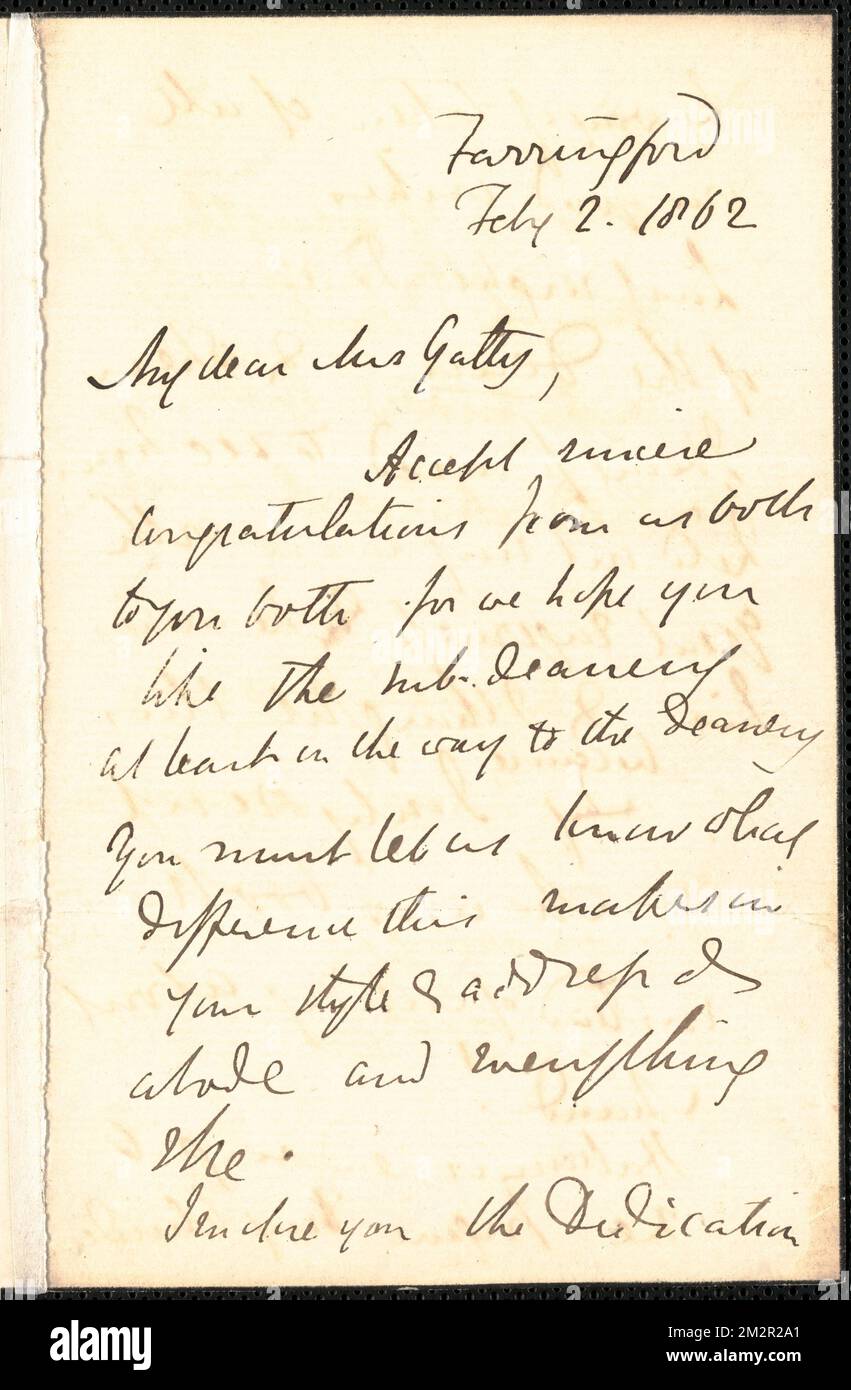 Farringford
Feby 2. 1862
My dear Mrs Gatty,
Accept sincere
congratulations from us both
to you both for we hope you
like the sub-deanery
at least on the way to the Deanery
You must let us know what
difference this makes in
your style & address &
abode and everything
else.
I enclose you the Dedication
alamy
Image ID: 2M2R2A1
www.alamy.com